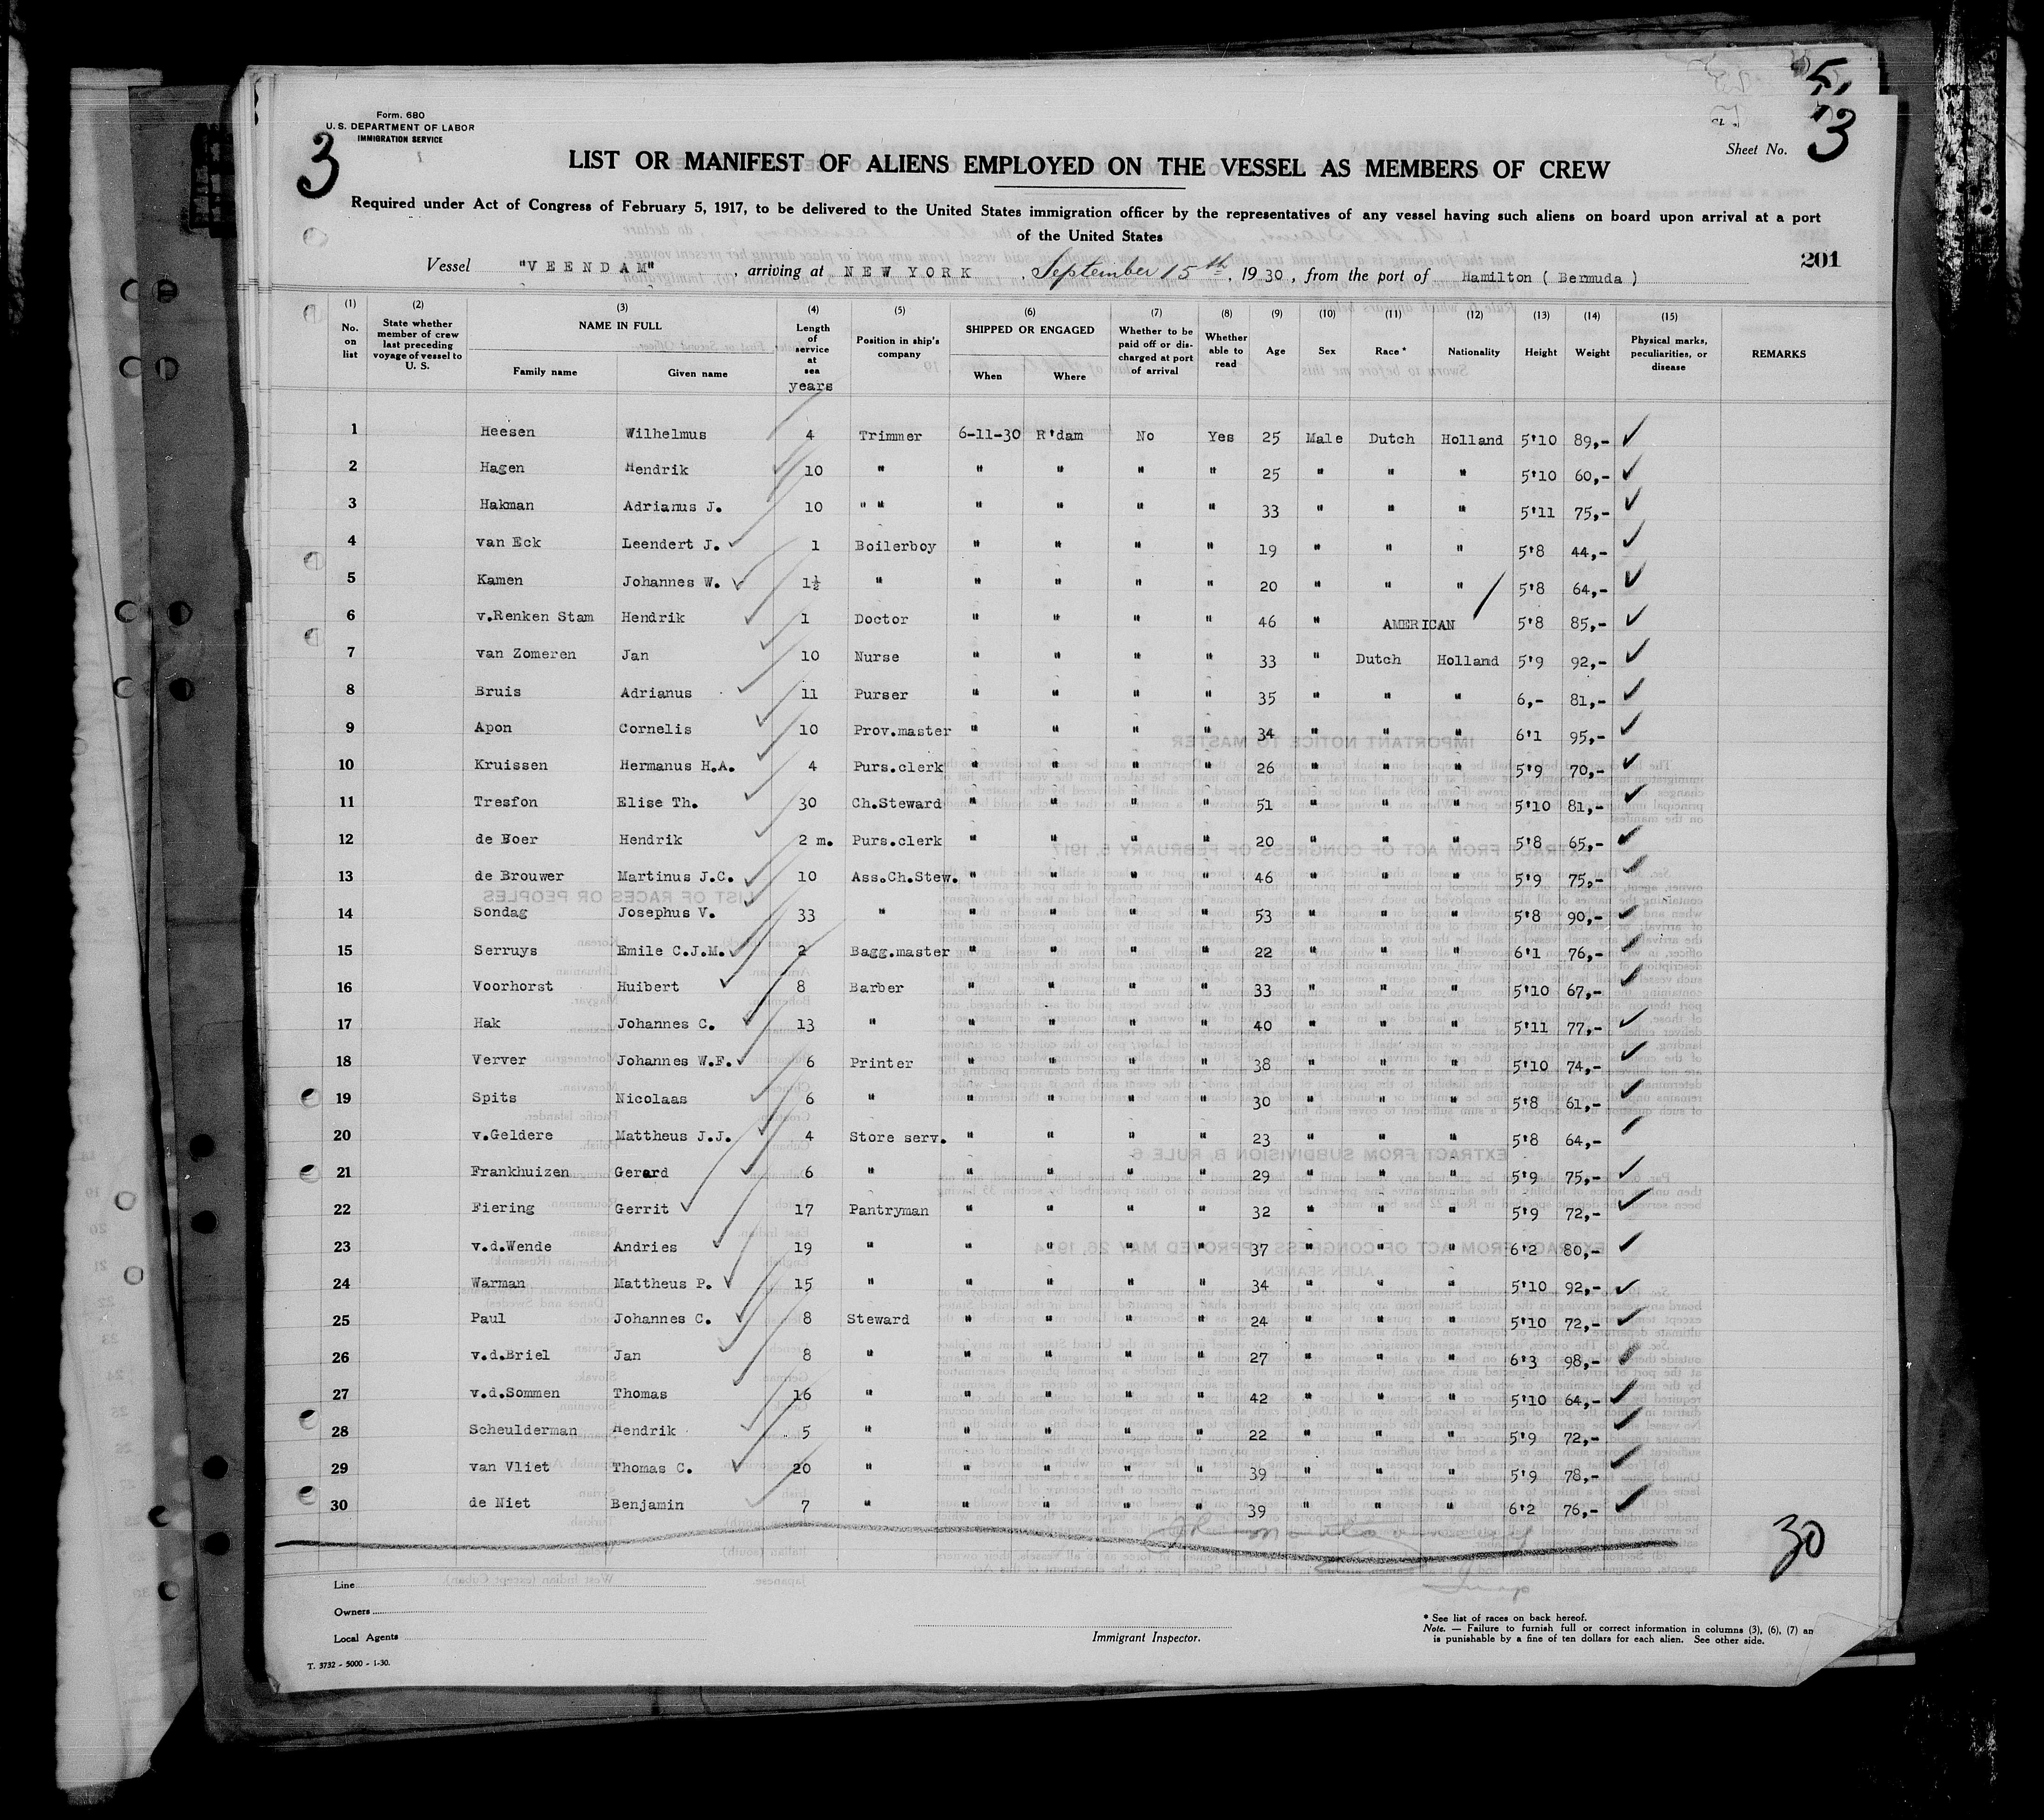 Form. 680
U.S. DEPARTMENT OF LABOR
IMMIGRATION SERVICE
3
Sheet No. 3
LIST OR MANIFEST OF ALIENS EMPLOYED ON THE VESSEL AS MEMBERS OF CREW
Required under Act of Congress of February 5, 1917, to be delivered to the United States immigration officer by the representatives of any vessel having such aliens on board upon arrival at a port
of the United States
201
Vessel "VEENDAM", arriving at NEW YORK, September 15th, 1930, from the port of Hamilton ( Bermuda )
(1) (2) (3) (4) (5) (6) (7) (8) (9) (10) (11) (12) (13) (14) (15)
No. on list State whether member of crew last preceding voyage of vessel to U. S. NAME IN FULL Family name Given name Length of service at sea years Position in ship's company SHIPPED OR ENGAGED When Where Whether to be paid off or discharged at port of arrival Whether able to read Age Sex Race * Nationality Height Weight Physical marks, peculiarities, or disease REMARKS
1 Heesen Wilhelmus 4 Trimmer 6-11-30 R'dam No Yes 25 Male Dutch Holland 5'10 89,-
2 Hagen Hendrik 10 " " " " " 25 " " " 5'10 60,-
3 Hakman Adrianus J. 10 " " " " " " 33 " " " 5'11 75,-
4 van Eck Leendert J. 1 Boilerboy " " " " 19 " " " 5'8 44,-
5 Kamen Johannes W. 1½ " " " " " 20 " " " 5'8 64,-
6 v.Renken Stam Hendrik 1 Doctor " " " " 46 " AMERICAN 5'8 85,-
7 van Zomeren Jan 10 Nurse " " " " 33 " Dutch Holland 5'9 92,-
8 Bruis Adrianus 11 Purser " " " " 35 " " " 6,- 81,-
9 Apon Cornelis 10 Prov.master " " " " 34 " " " 6'1 95,-
10 Kruissen Hermanus H.A. 4 Purs.clerk " " " " 26 " " " 5'9 70,-
11 Tresfon Elise Th. 30 Ch.Steward " " " " 51 " " " 5'10 81,-
12 de Boer Hendrik 2 m. Purs.clerk " " " " 20 " " " 5'8 65,-
13 de Brouwer Martinus J.C. 10 Ass.Ch.Stew. " " " " 46 " " " 5'9 75,-
14 Sondag Josephus V. 33 " " " " " 53 " " " 5'8 90,-
15 Serruys Emile C.J.M. 2 Bagg.master " " " " 22 " " " 6'1 76,-
16 Voorhorst Huibert 8 Barber " " " " 33 " " " 5'10 67,-
17 Hak Johannes C. 13 " " " " " 40 " " " 5'11 77,-
18 Verver Johannes W.F. 6 Printer " " " " 38 " " " 5'10 74,-
19 Spits Nicolaas 6 " " " " " 30 " " " 5'8 61,-
20 v.Geldere Mattheus J.J. 4 Store serv. " " " " 23 " " " 5'8 64,-
21 Frankhuizen Gerard 6 " " " " " 29 " " " 5'9 75,-
22 Fiering Gerrit 17 Pantryman " " " " 32 " " " 5'9 72,-
23 v.d.Wende Andries 19 " " " " " 37 " " " 6'2 80,-
24 Warman Mattheus P. 15 " " " " " 34 " " " 5'10 92,-
25 Paul Johannes C. 8 Steward " " " " 24 " " " 5'10 72,-
26 v.d.Briel Jan 8 " " " " " 27 " " " 6'3 98,-
27 v.d.Sommen Thomas 16 " " " " " 42 " " " 5'10 64,-
28 Scheulderman Hendrik 5 " " " " " 22 " " " 5'9 72,-
29 van Vliet Thomas C. 20 " " " " " 39 " " " 5'9 78,-
30 de Niet Benjamin 7 " " " " " 39 " " " 6'2 76,-
30
Line
Owners
Local Agents
Immigrant Inspector.
* See list of races on back hereof.
Note. — Failure to furnish full or correct information in columns (3), (6), (7) an
is punishable by a fine of ten dollars for each alien. See other side.
T. 3732 - 5000 - 1-30.